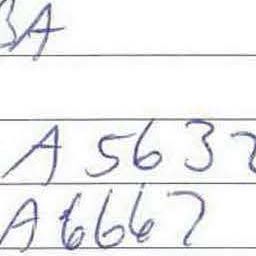 BA
A 5632
A6667